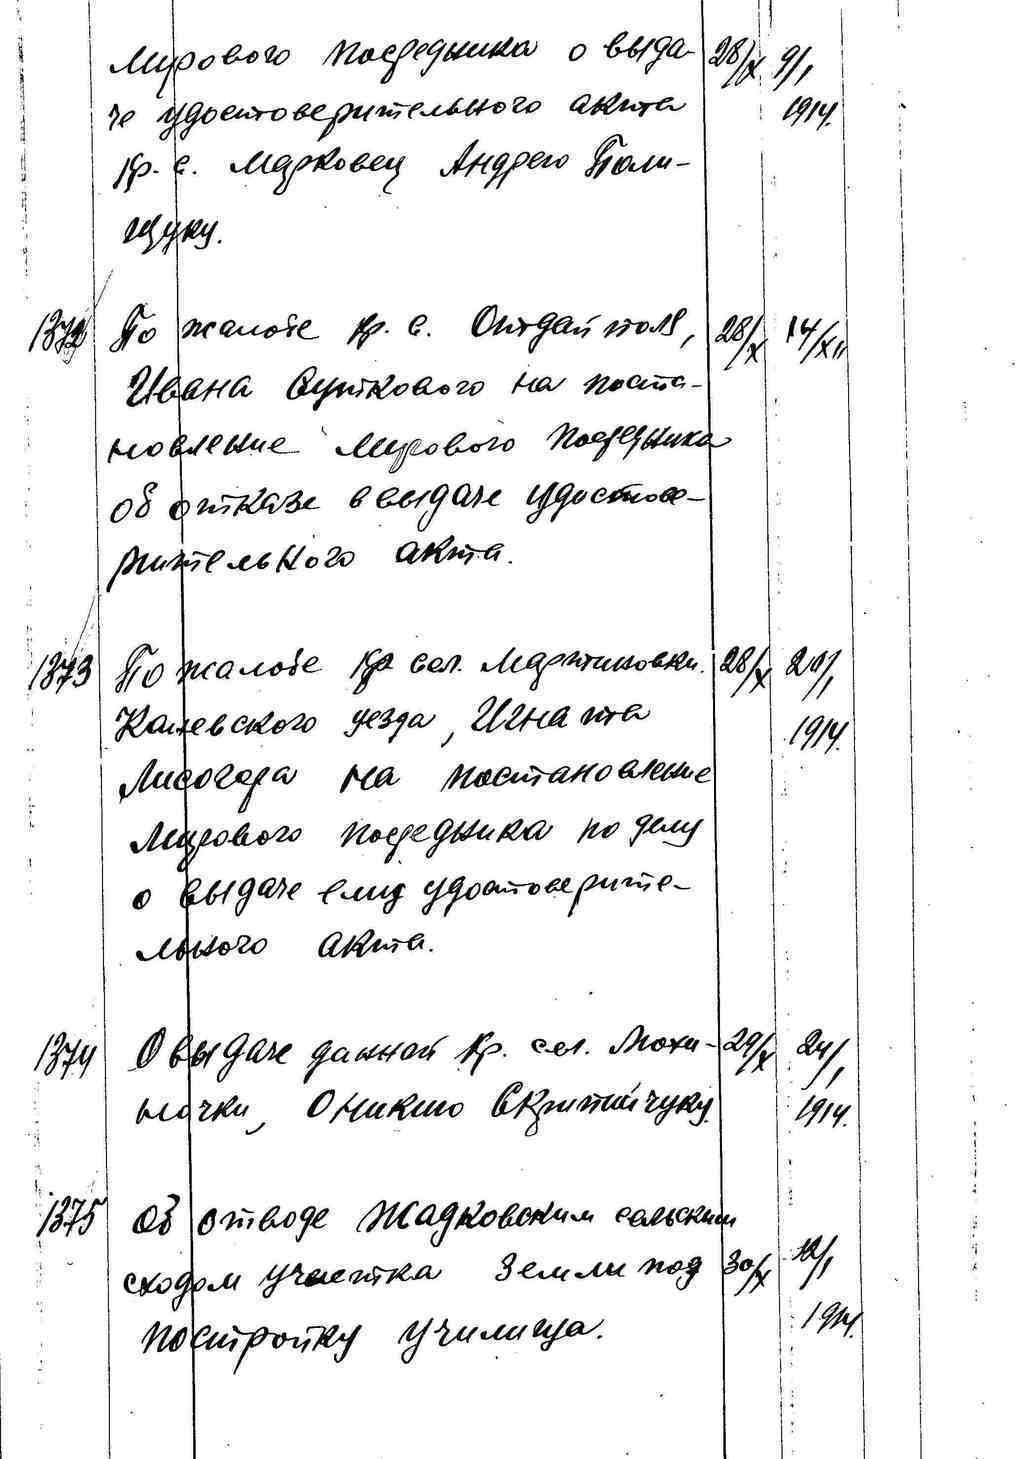 Мирового посредника о выда- 28/X 9/I
че удостоверительного акта 1914.
кр. с. Марковец Андрею Поли-
щуку.
1372 По жалобе кр. с. Оптдай поля, 28/X 14/XII
Ивана Суткового на поста-
новление Мирового посредника
об отказе в выдаче удостове-
рительного акта.
1373 По жалобе кр сел. Мартиновки. 28/X 20/I
Каневского уезда, Игната 1914.
Лисогора на постановление
Мирового посредника по делу
о выдаче ему удостоверите-
льного акта.
1374 О выдаче данной кр. сел. Мохи- 29/X 24/I
ночки, Оникию 1914.
1375 Об отводе Жадковским сельским
сходом участка земли под 30/X 12/I
постройку училища. 1914.